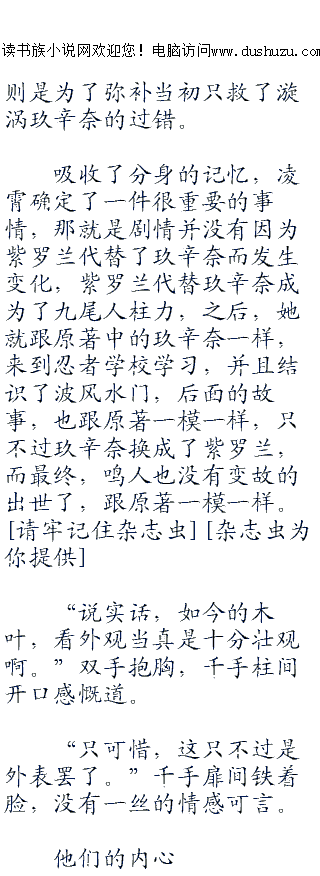 读书族小说网欢迎您！电脑访问www.dushuzu.com
则是为了弥补当初只救了漩
涡玖辛奈的过错。
吸收了分身的记忆，凌
霄确定了一件很重要的事
情，那就是剧情并没有因为
紫罗兰代替了玖辛奈而发生
变化，紫罗兰代替玖辛奈成
为了九尾人柱力，之后，她
就跟原著中的玖辛奈一样，
来到忍者学校学习，并且结
识了波风水门，后面的故
事，也跟原著一模一样，只
不过玖辛奈换成了紫罗兰，
而最终，鸣人也没有变故的
出世了，跟原著一模一样。
[请牢记住杂志虫][杂志虫为
你提供]
“说实话，如今的木
叶，看外观当真是十分壮观
啊。”双手抱胸，千手柱间
开口感慨道。
“只可惜，这只不过是
外表罢了。”千手扉间铁着
脸，没有一丝的情感可言。
他们的内心